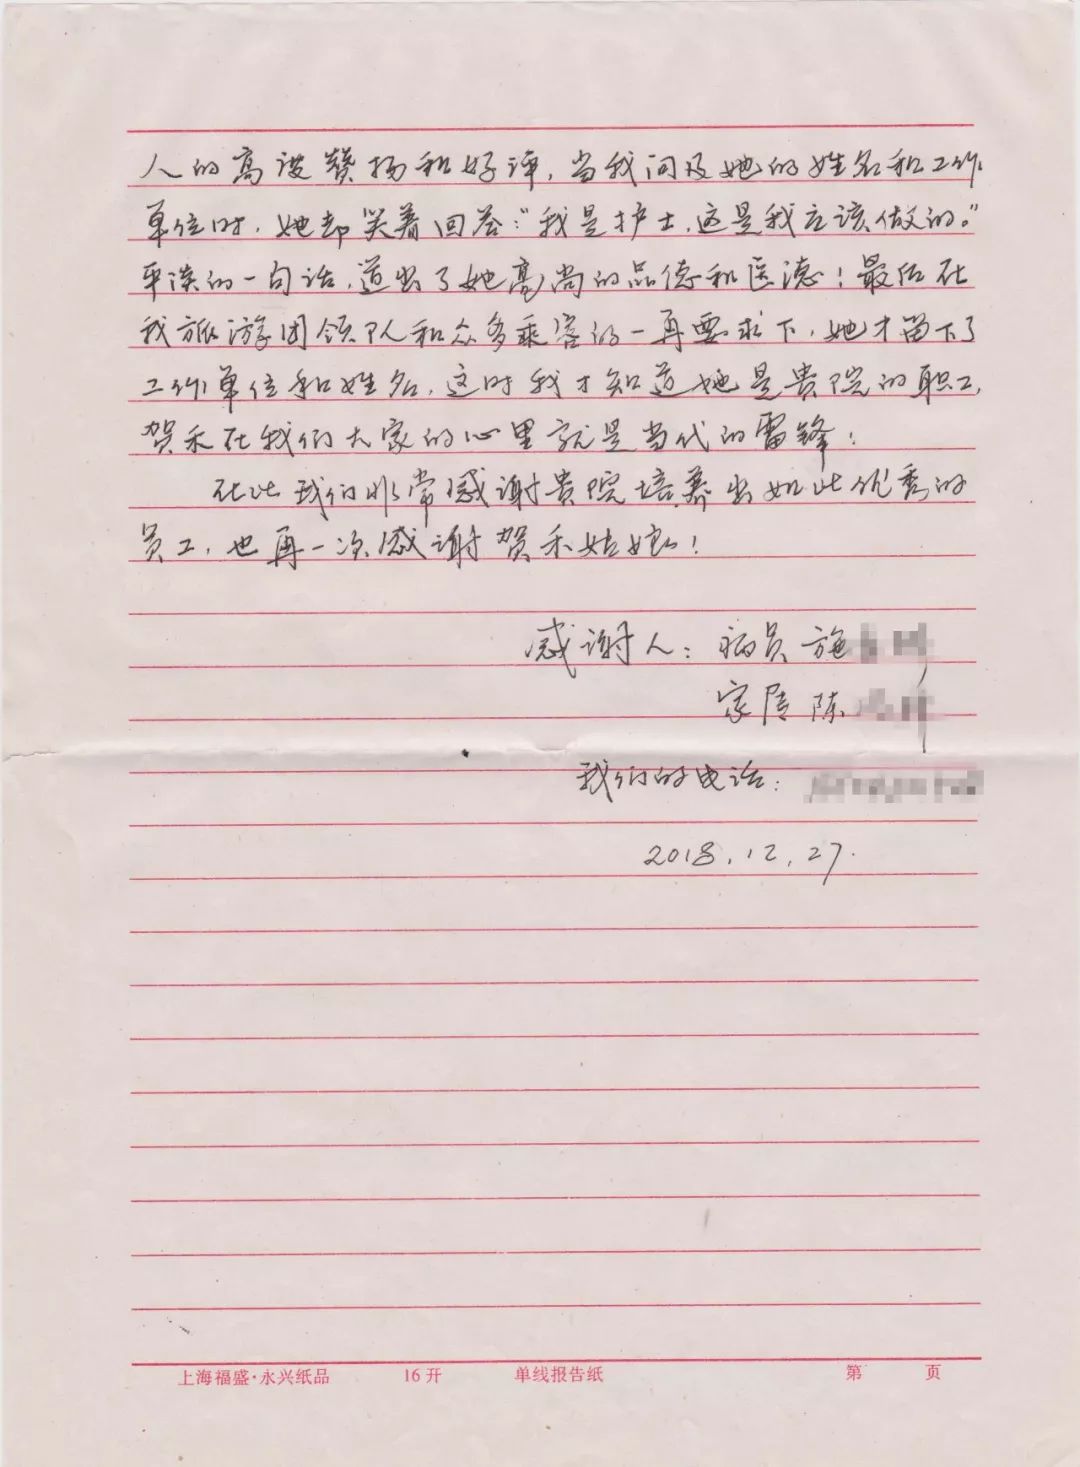 人的高度赞扬和好评，当我问及她的姓名和工作
单位时，她却笑着回答："我是护士，这是我应该做的。"
平淡的一句话，道出了她高尚的品德和医德！最后在
我旅游团领队和众多乘客的一再要求下，她才留下了
工作单位和姓名，这时我才知道她是贵院的职工，
贺禾在我们大家的心里就是当代的雷锋！
在此我们非常感谢贵院培养出如此优秀的
员工，也再一次感谢贺禾姑娘！
感谢人：病员施
家属陈
我们的电话：
2018.12.27.
上海福盛·永兴纸品 16开 单线报告纸 第 页